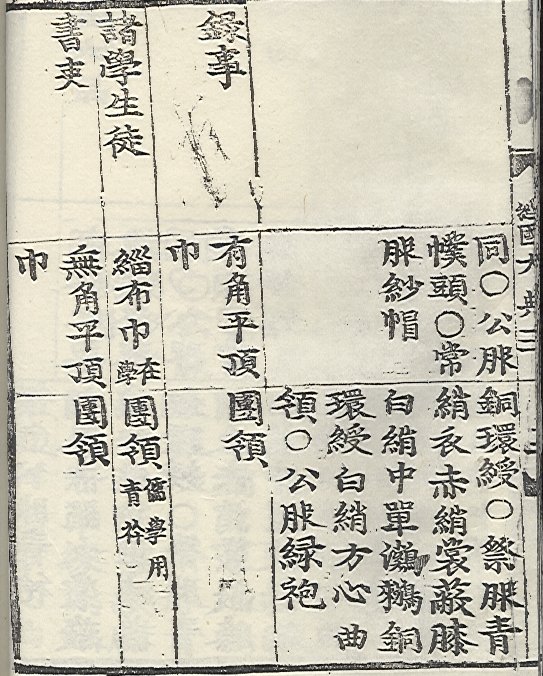 經國大典 三
同○公服
幞頭○常
服紗帽
銅環綬○祭服青
綃衣赤綃裳蔽膝
白綃中單㶉鶒銅
環綬白綃方心曲
領○公服緑袍
錄事
有角平頂
巾
團領
諸學生徒
緇布巾
在
學
團領
儒學用
青衿
書吏
無角平頂
巾
團領